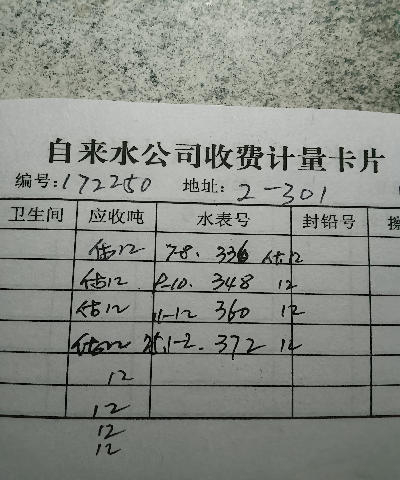 自来水公司收费计量卡片
编号:172250 地址: 2-301
卫生间 应收吨 水表号 封铅号
估12 7-8. 336 估.12
估12 9-10. 348 12
估12 11-12 360 12
估12 25.1-2. 372 12
12
12
12
12